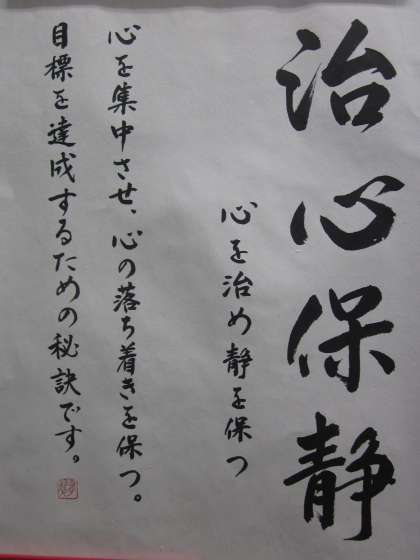 治心保静
心を治め静を保つ
心を集中させ、心の落ち着きを保つ。
目標を達成するための秘訣です。